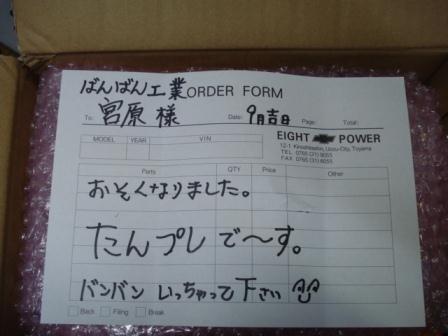 ばんばん工業 ORDER FORM
To: 宮原様 Date: 9月吉日 Page: Total:
MODEL YEAR VIN
EIGHT POWER
12-1 Kinoshitashin, Uozu-City, Toyama
TEL 0765 (31) 8055
FAX 0765 (31) 8055
Parts QTY Price Other
おそくなりました。
たんプレで〜す。
バンバン いっちゃって下さい
Back Filing Break